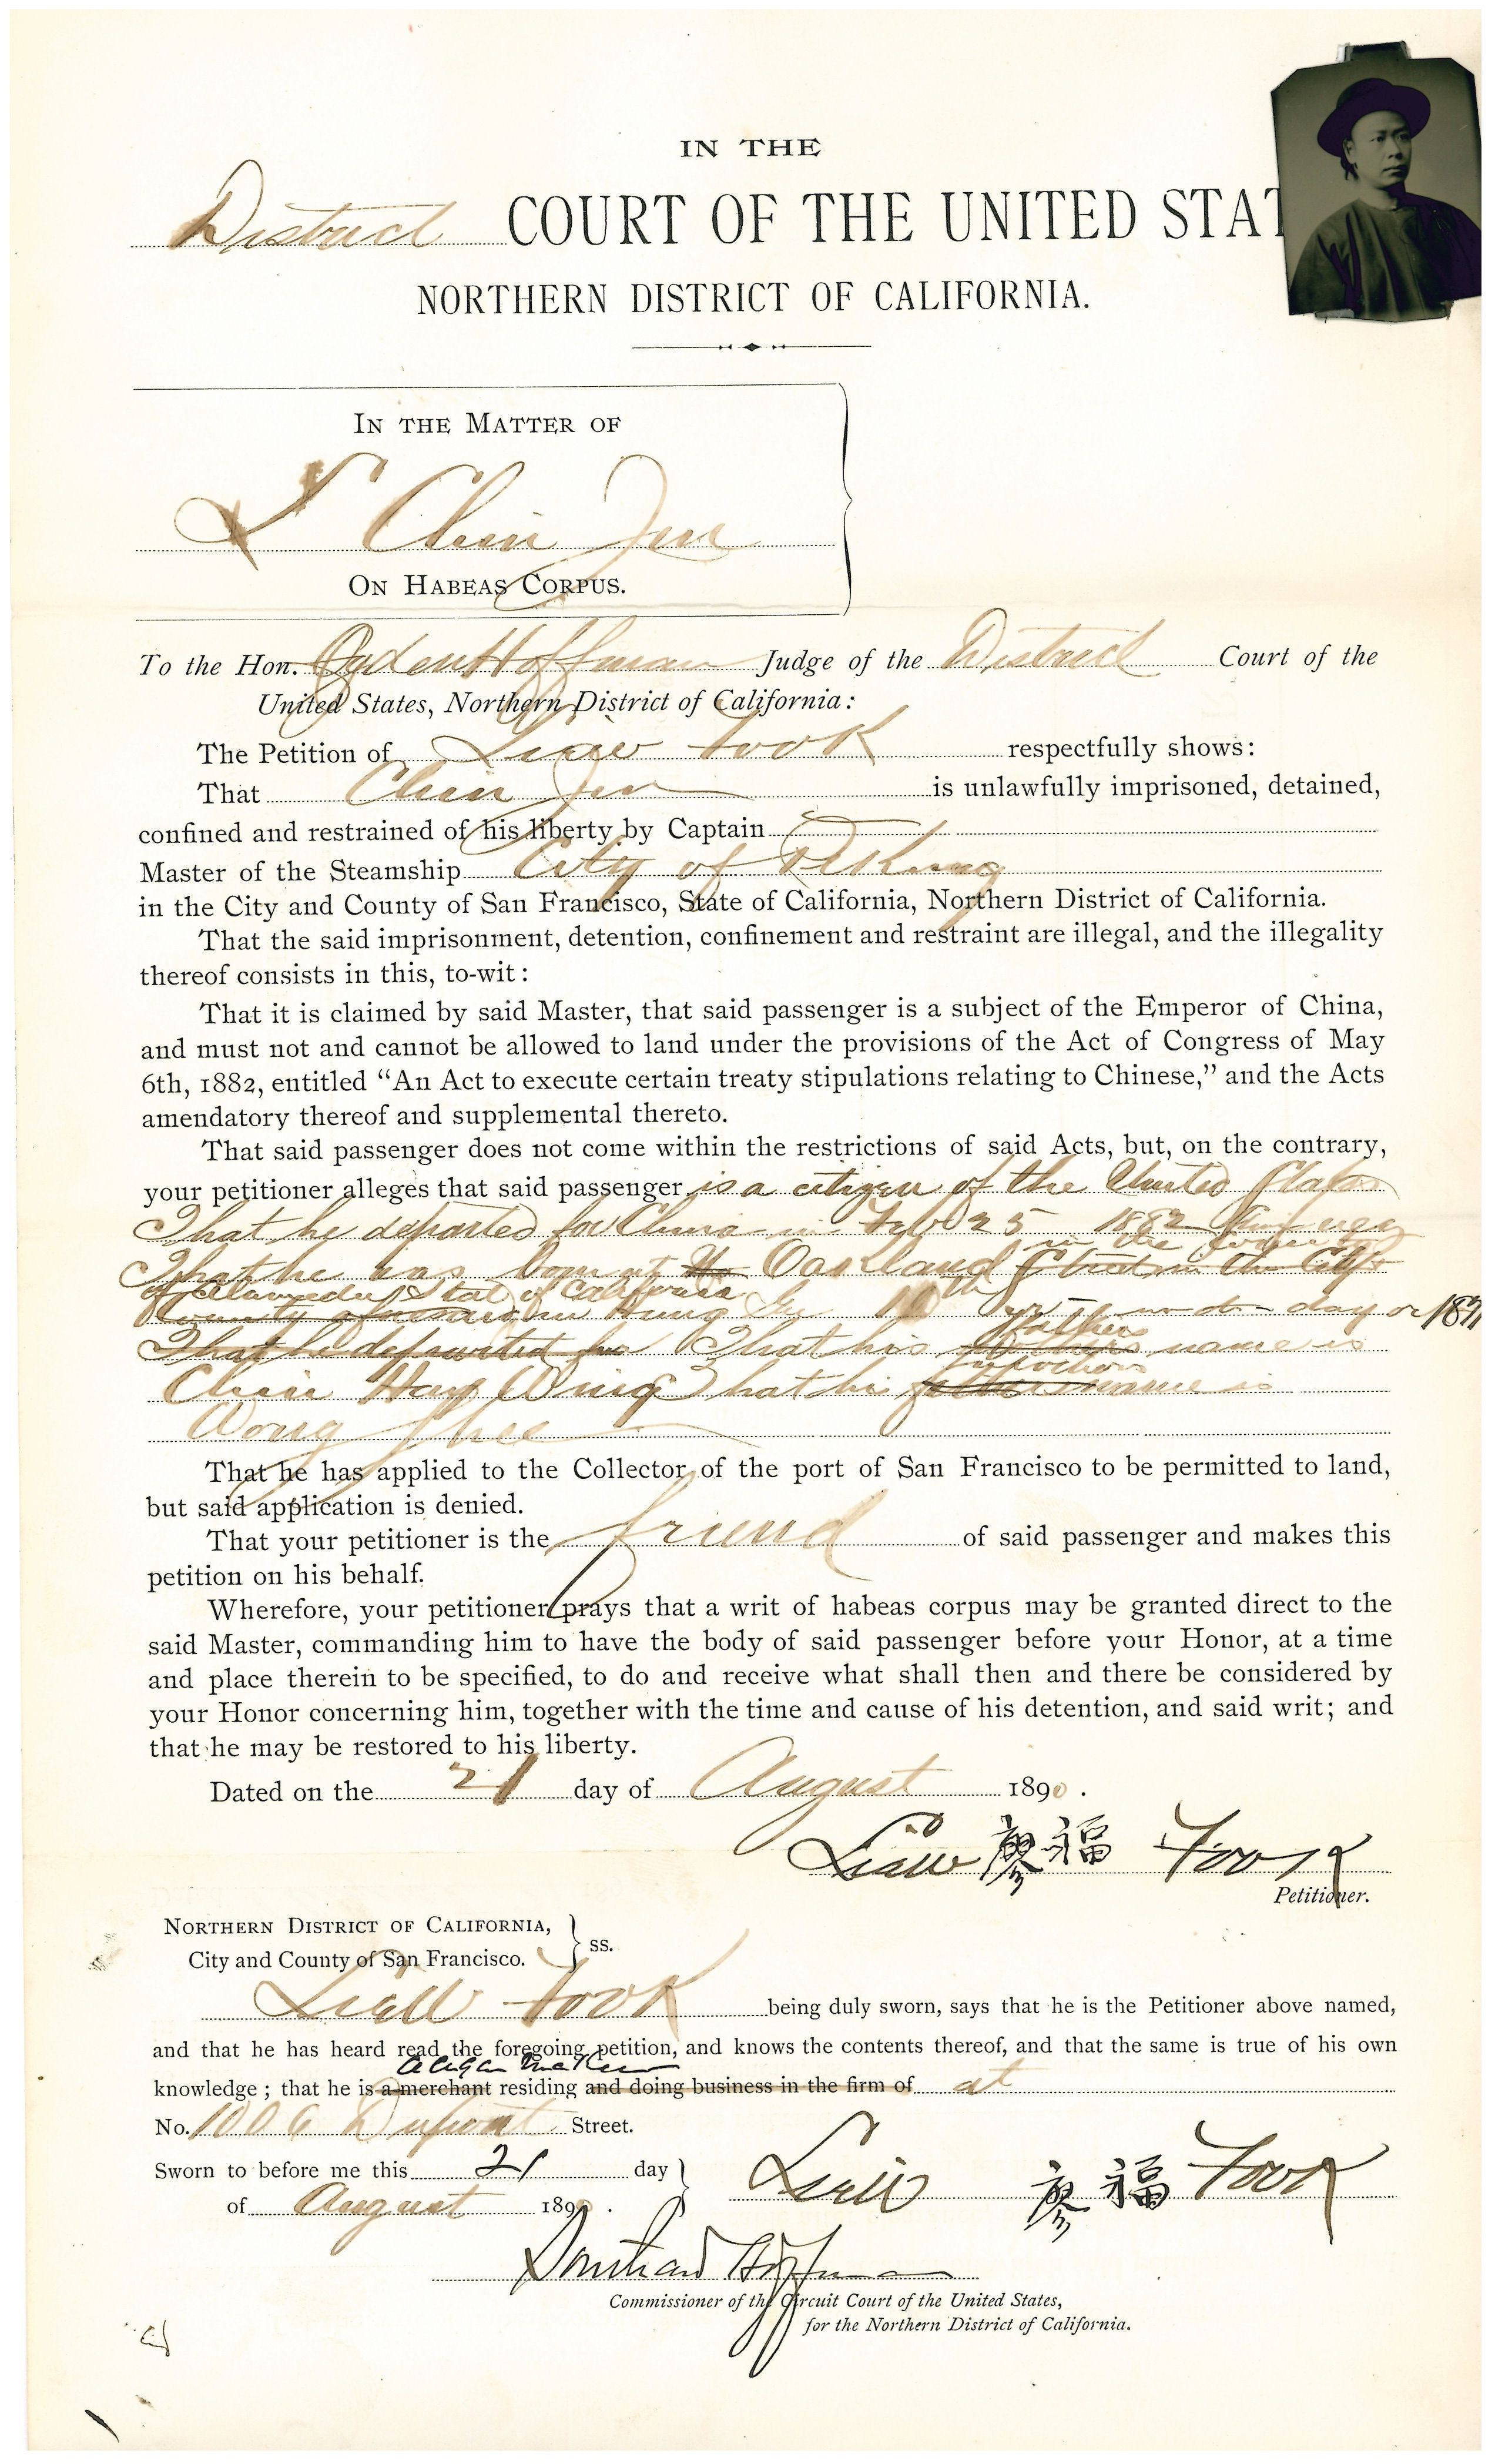 IN THE
District COURT OF THE UNITED STAT
NORTHERN DISTRICT OF CALIFORNIA.
IN THE MATTER OF
Chin Jun
ON HABEAS CORPUS.
To the Hon. Ogden Hoffman Judge of the District Court of the
United States, Northern District of California:
The Petition of Liew Fook respectfully shows:
That Chin Jun is unlawfully imprisoned, detained,
confined and restrained of his liberty by Captain
Master of the Steamship City of Peking
in the City and County of San Francisco, State of California, Northern District of California.
That the said imprisonment, detention, confinement and restraint are illegal, and the illegality
thereof consists in this, to-wit:
That it is claimed by said Master, that said passenger is a subject of the Emperor of China,
and must not and cannot be allowed to land under the provisions of the Act of Congress of May
6th, 1882, entitled “An Act to execute certain treaty stipulations relating to Chinese,” and the Acts
amendatory thereof and supplemental thereto.
That said passenger does not come within the restrictions of said Acts, but, on the contrary,
your petitioner alleges that said passenger is a citizen of the United States
That he departed for China in Feb 25 1882
in the County
That he was born at the Oakland Street in the City &
of Alameda State of California
County of in 10th day or 187
Father
That he departed for That his name is
mother
Chin Hay Wing That his father name is
Wong Shee
That he has applied to the Collector of the port of San Francisco to be permitted to land,
but said application is denied.
That your petitioner is the friend of said passenger and makes this
petition on his behalf.
Wherefore, your petitioner prays that a writ of habeas corpus may be granted direct to the
said Master, commanding him to have the body of said passenger before your Honor, at a time
and place therein to be specified, to do and receive what shall then and there be considered by
your Honor concerning him, together with the time and cause of his detention, and said writ; and
that he may be restored to his liberty.
Dated on the 21 day of August 1890.
Liew 廖福 Fook
Petitioner.
NORTHERN DISTRICT OF CALIFORNIA,
City and County of San Francisco. } ss.
Liew Fook being duly sworn, says that he is the Petitioner above named,
and that he has heard read the foregoing petition, and knows the contents thereof, and that the same is true of his own
a cigar maker
knowledge; that he is a merchant residing and doing business in the firm of at
No. 1006 Dupont Street.
Sworn to before me this 21 day
of August 1890.
Liew 廖福 Fook
Southard Hoffman
Commissioner of the Circuit Court of the United States,
for the Northern District of California.